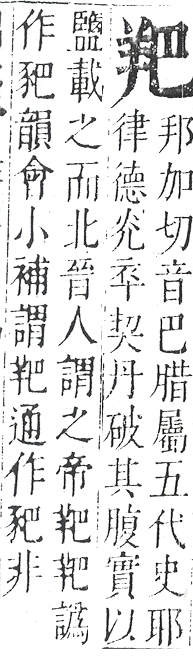 羓
邦加切音巴腊屬五代史耶
律德灮卒契丹破其腹實以
鹽載之而北晉人謂之帝羓羓譌
作豝韻會小補謂羓通作豝非